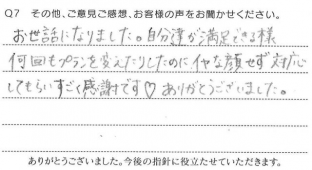 Q7 その他、ご意見ご感想、お客様の声をお聞かせください。
お世話になりました。自分達が満足できる様
何回もプランを変えたりしたのにイヤな顔せず対応
してもらいすごく感謝です♡ありがとうございました。
ありがとうございました。今後の指針に役立たせていただきます。